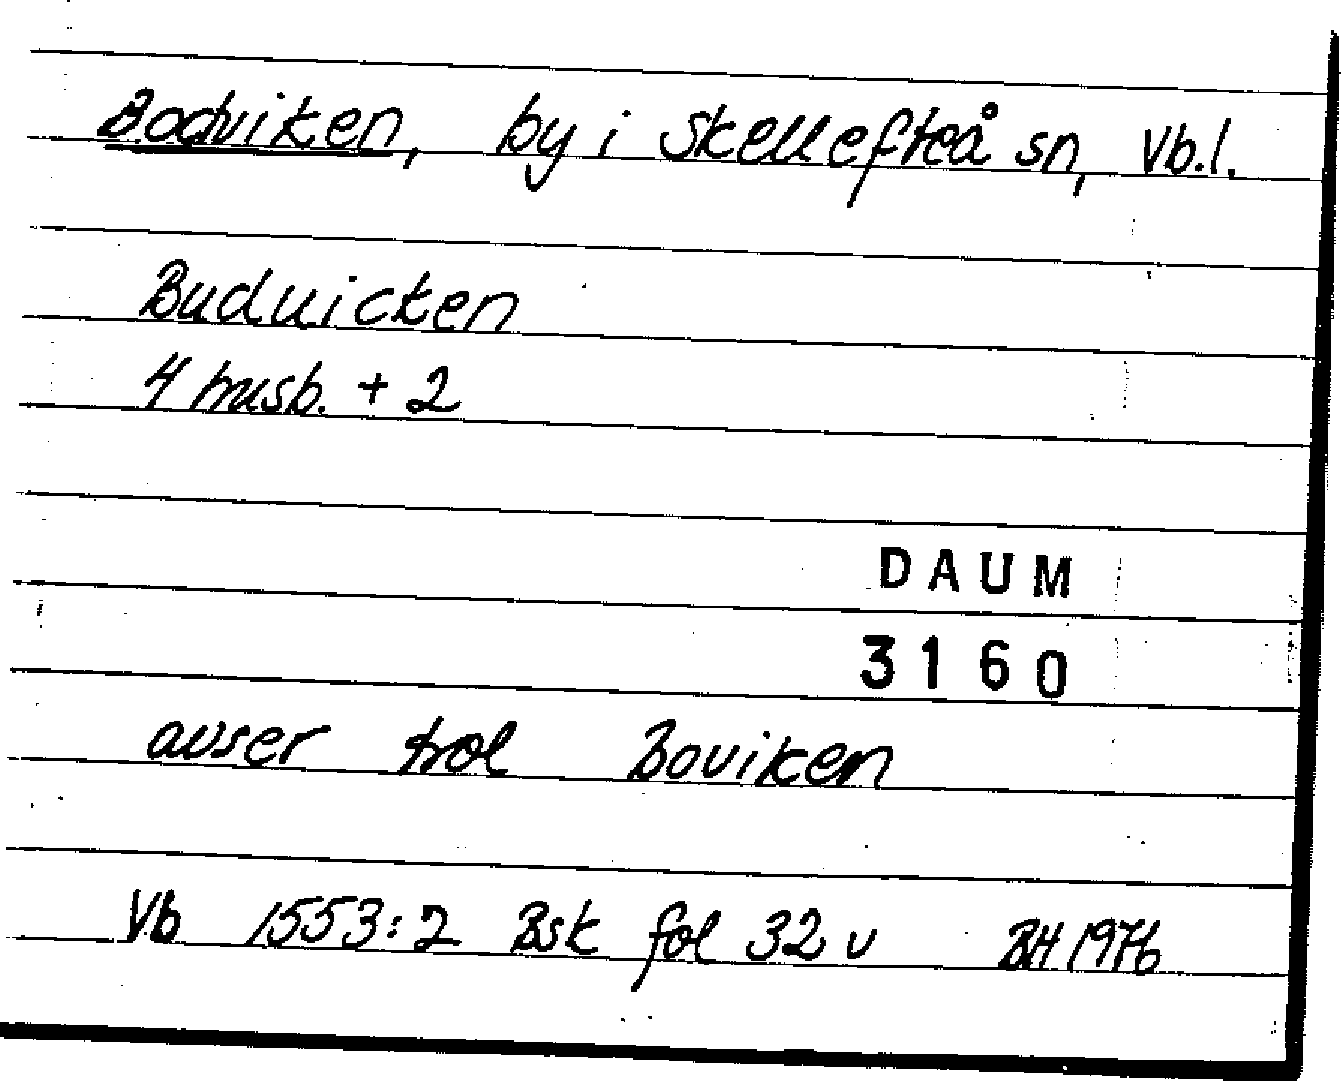 Bodviken, by i Skellefteå sn, Vb.l.
Buduicken
4 husb. + 2
DAUM
3160
avser trol Boviken
Vb 1553:2 Bsk fol 32 v BH 1976